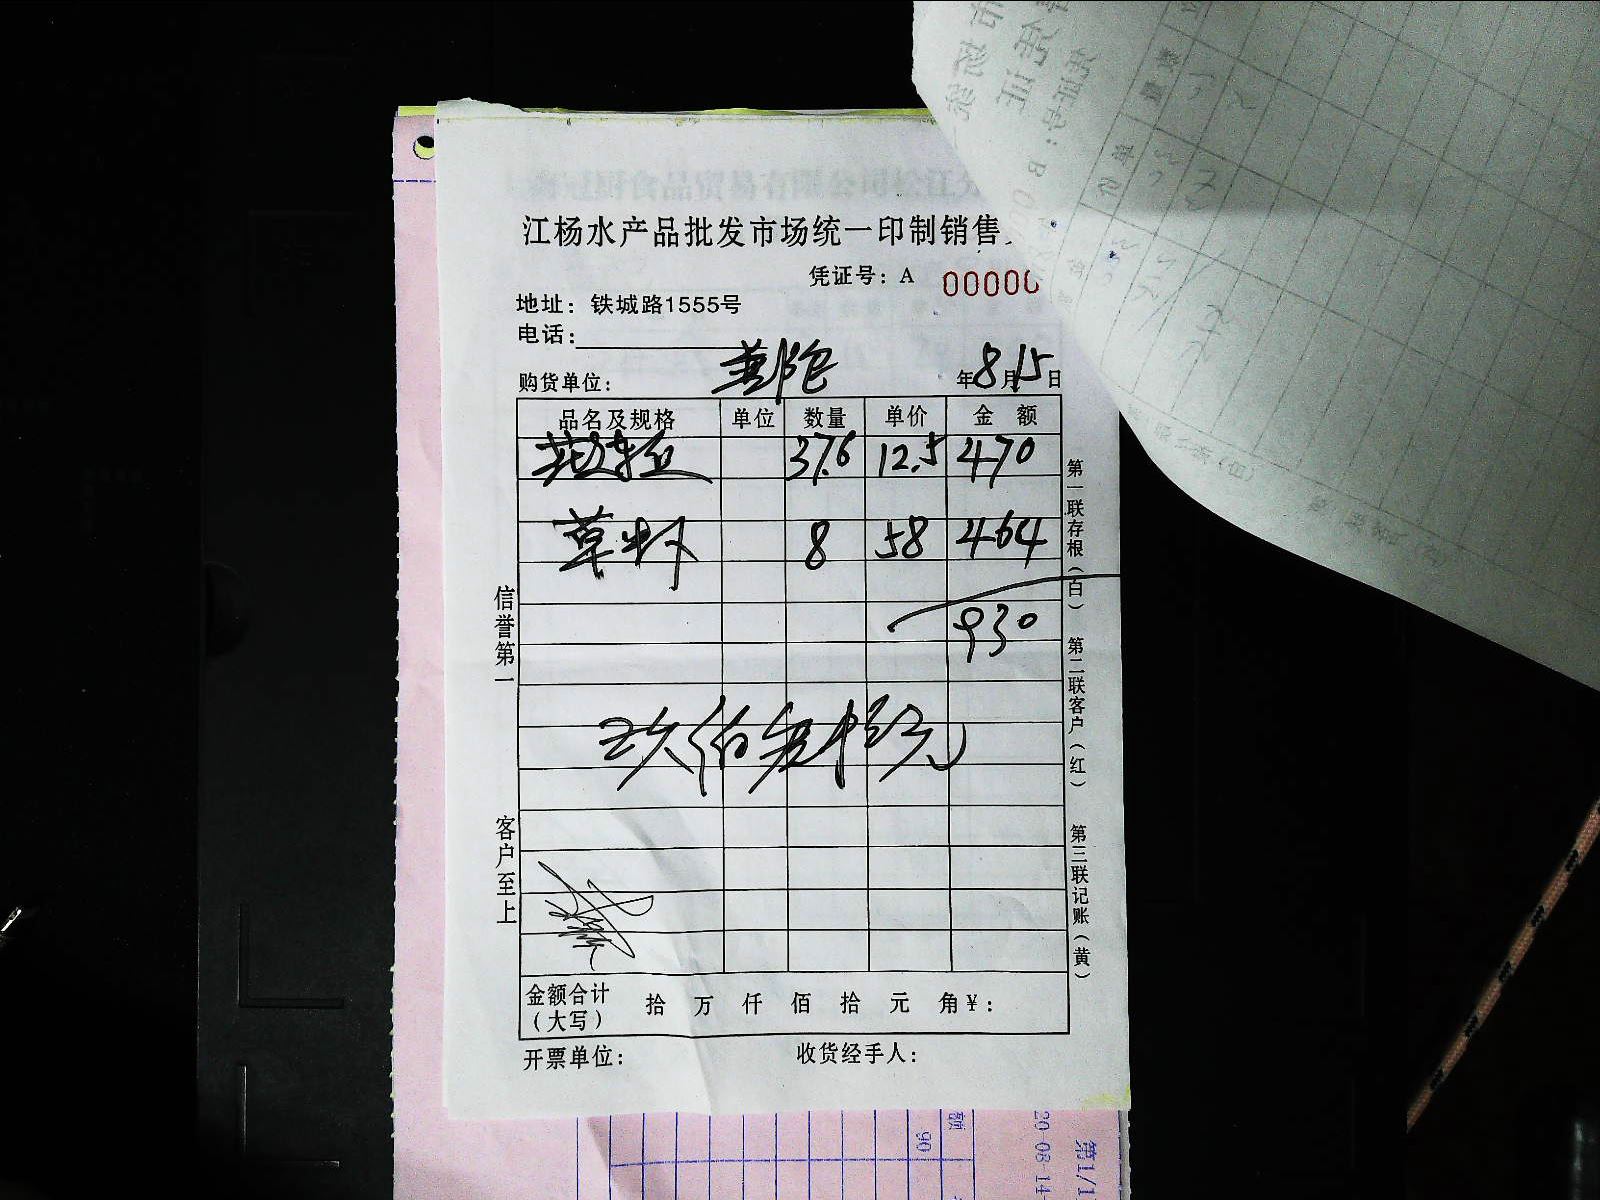 江杨水产品批发市场统一印制销售
凭证号：A 00000
地址：铁城路1555号
电话：
购货单位：
年8月15日
品名及规格 单位 数量 单价 金额
37.6 12.5 470
草虾 8 58 464
930
玖佰叁拾元
信誉第一
客户至上
第一联存根（白）
第二联客户（红）
第三联记账（黄）
金额合计（大写） 拾 万 仟 佰 拾 元 角 ¥：
开票单位： 收货经手人：
额
90
20-08-14
第1/1